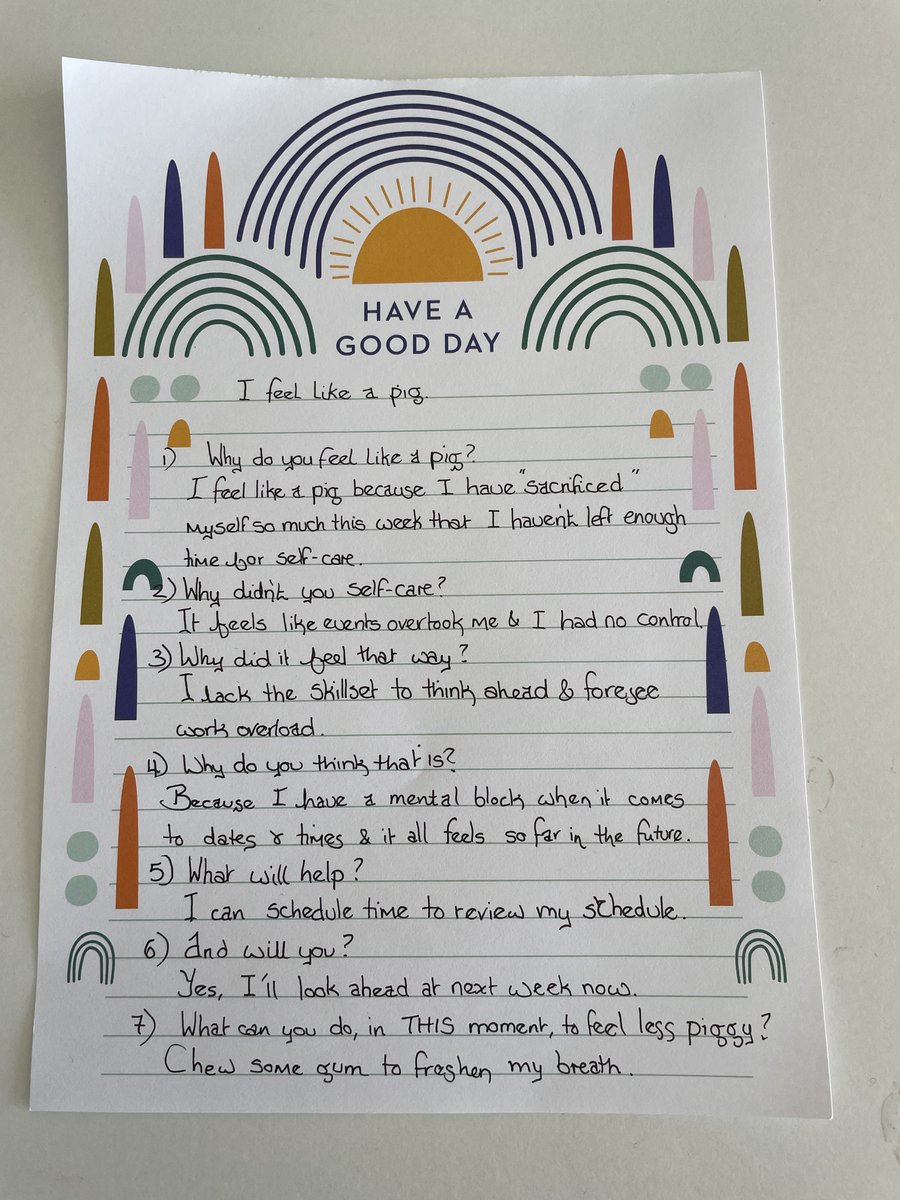 HAVE A
GOOD DAY
I feel like a pig.
1) Why do you feel like a pig?
I feel like a pig because I have "sacrificed"
myself so much this week that I haven't left enough
time for self-care.
2) Why didn't you self-care?
It feels like events overtook me & I had no control.
3) Why did it feel that way?
I lack the skillset to think ahead & foresee
work overload.
4) Why do you think that is?
Because I have a mental block when it comes
to dates & times & it all feels so far in the future.
5) What will help?
I can schedule time to review my schedule.
6) And will you?
Yes, I'll look ahead at next week now.
7) What can you do, in THIS moment, to feel less piggy?
Chew some gum to freshen my breath.